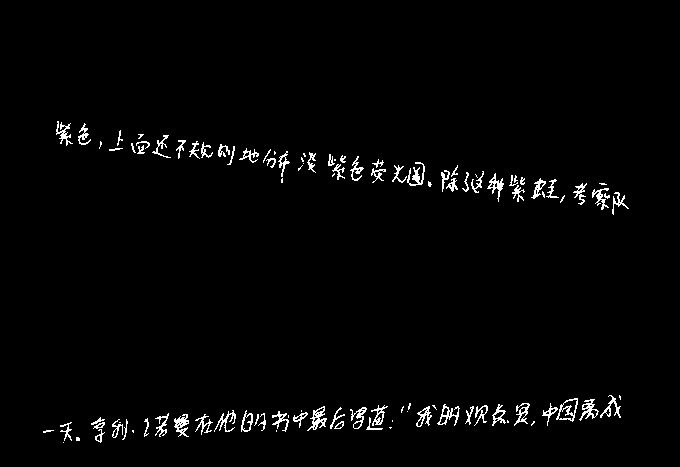 紫色，上面还不规则地分布淡紫色荧光圈。除了这种紫蛙，考察队
一天。亨利·基辛在他的书中最后写道：“我的观点是，中国离成